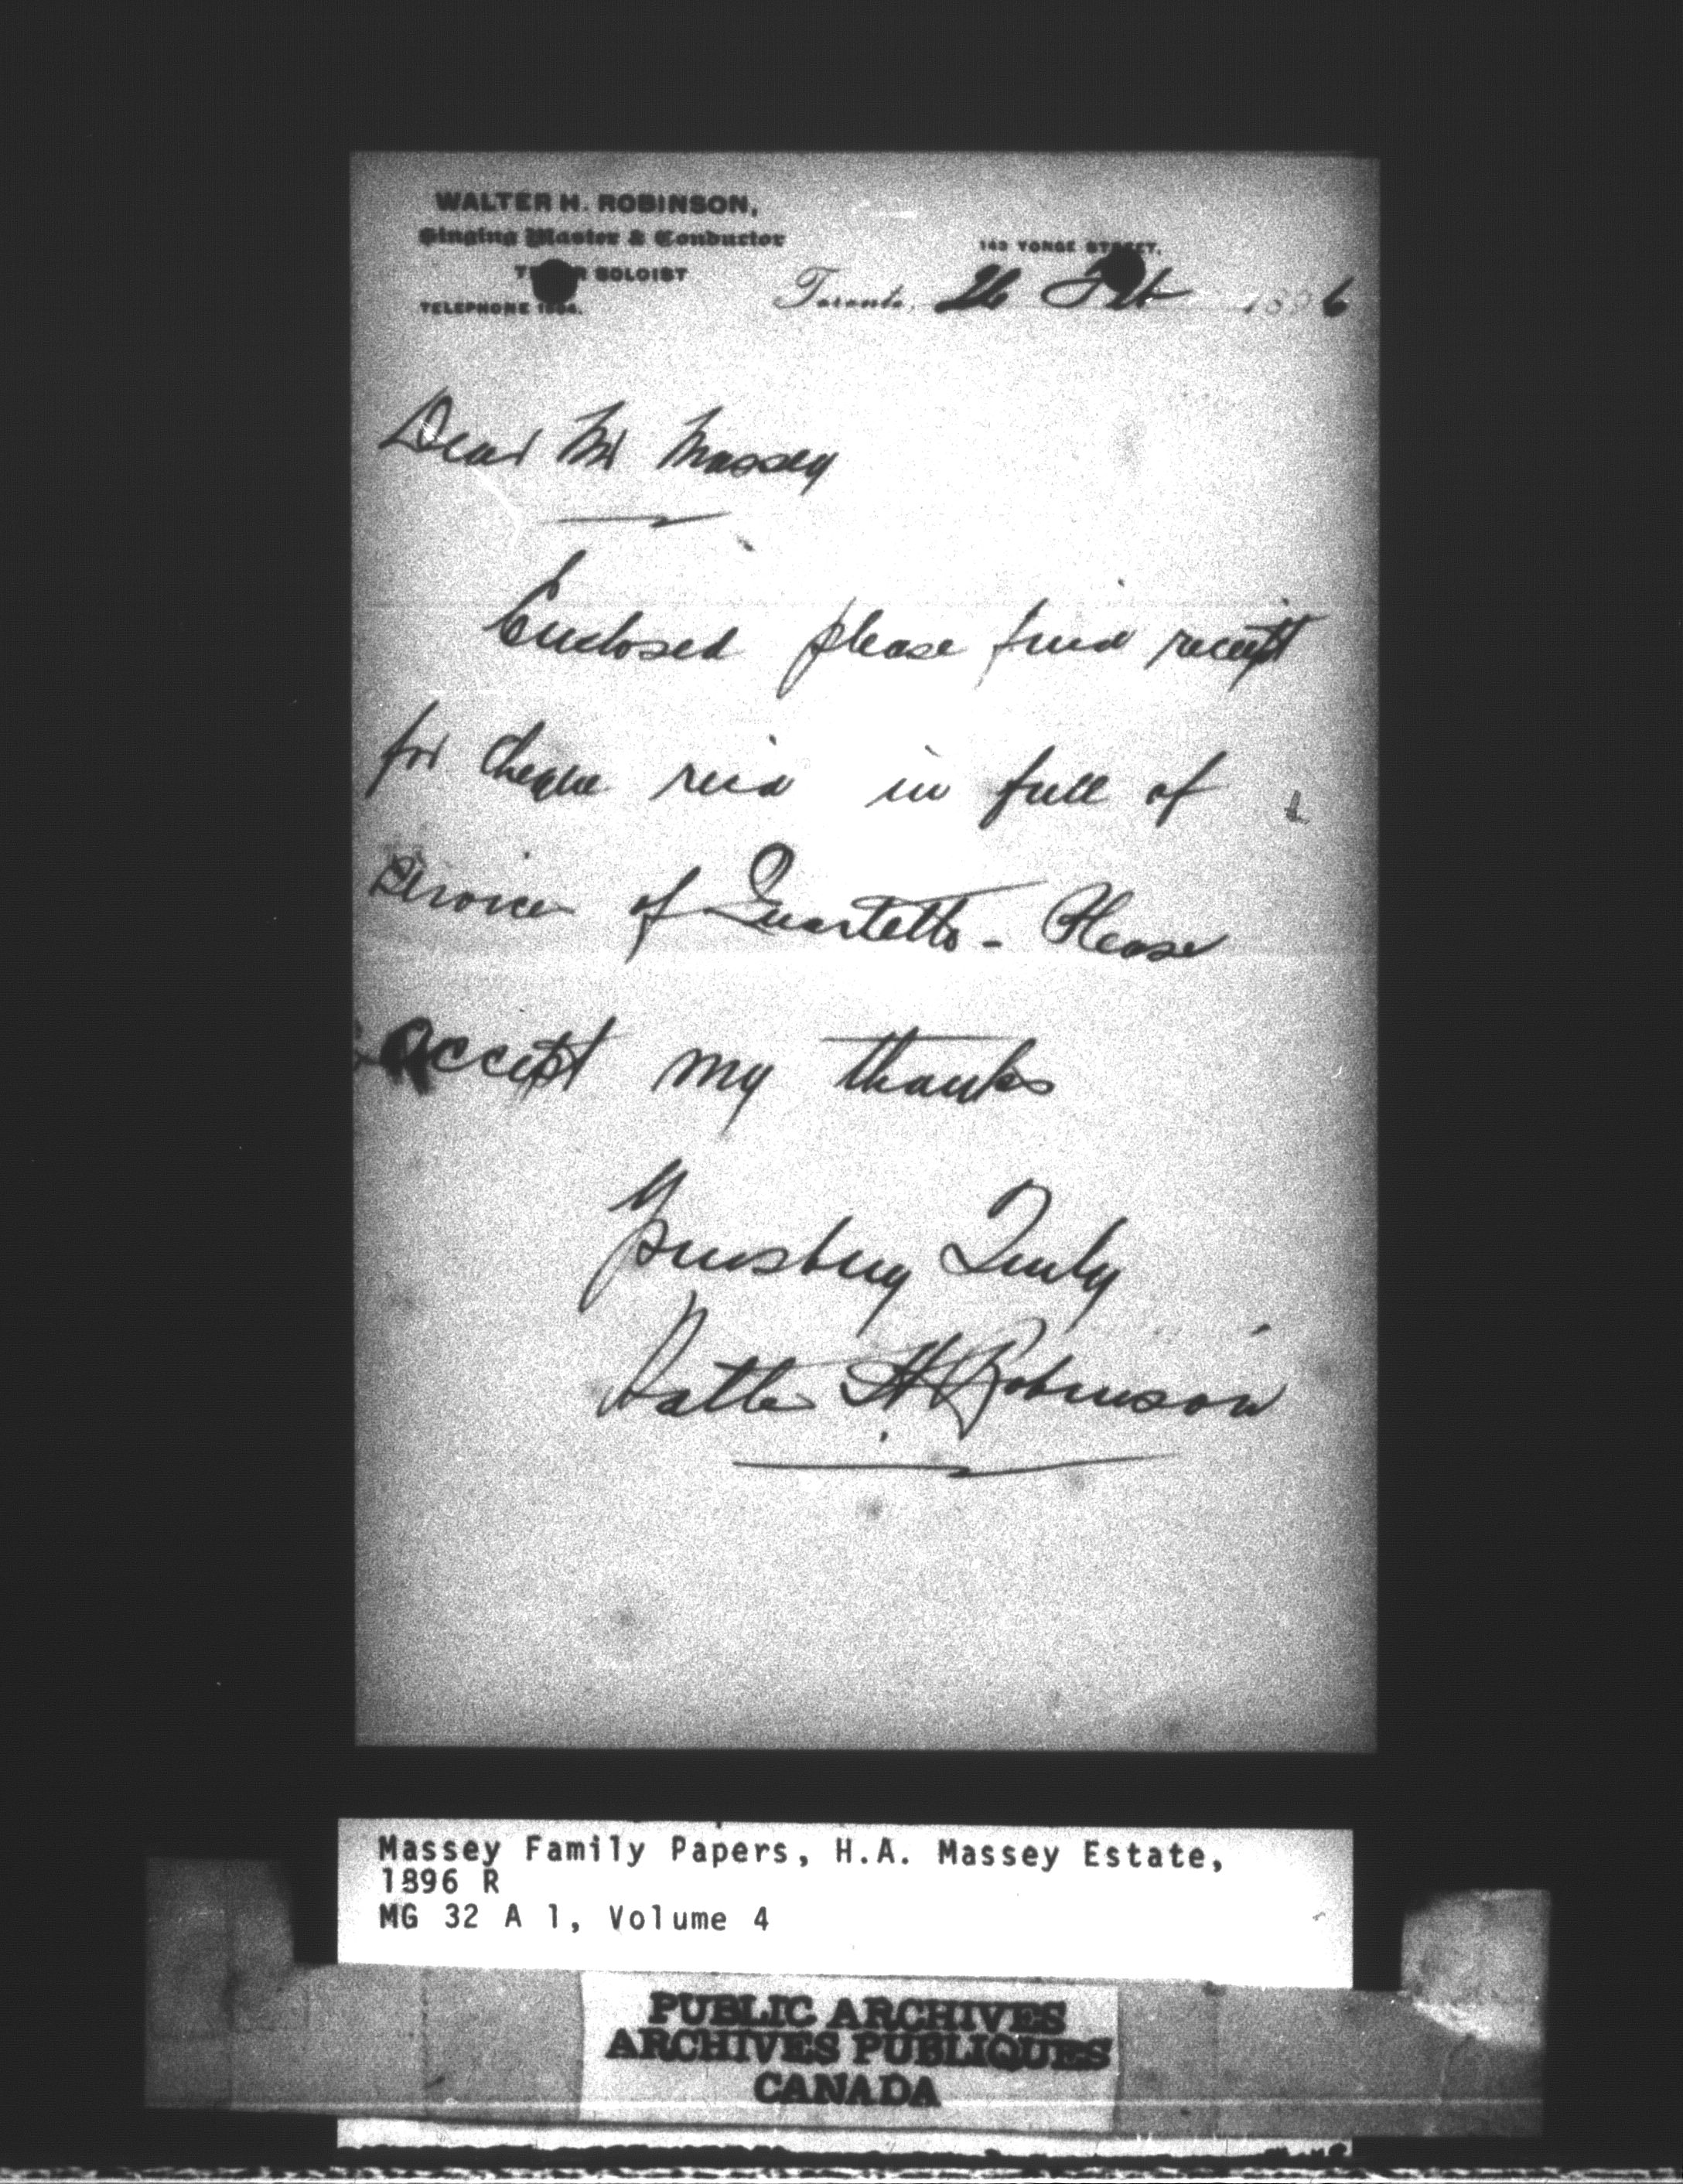 WALTER H. ROBINSON,
Singing Master & Conductor
TENOR SOLOIST
TELEPHONE
143 YONGE STREET,
Toronto, 26 Feb 1896
Dear Mr Massey
Enclosed please find receipt
for Cheque recd in full of
Services of Quartette - Please
accept my thanks
Yours very Truly
Walter H Robinson
Massey Family Papers, H.A. Massey Estate,
1896 R
MG 32 A 1, Volume 4
PUBLIC ARCHIVES
ARCHIVES PUBLIQUES
CANADA